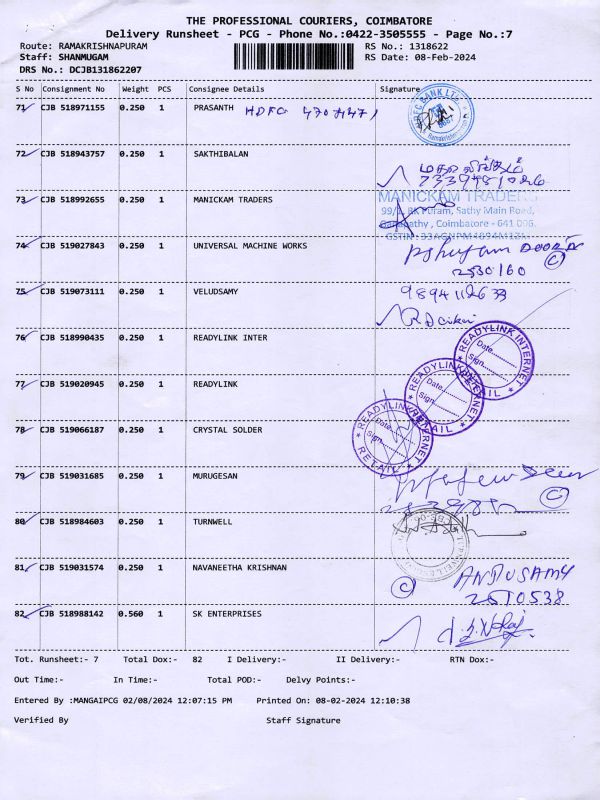 THE PROFESSIONAL COURIERS, COIMBATORE
Delivery Runsheet - PCG - Phone No.:0422-3505555 - Page No.:7
Route: RAMAKRISHNAPURAM RS No.: 1318622
Staff: SHANMUGAM RS Date: 08-Feb-2024
DRS No.: DCJB131862207
S No Consignment No Weight PCS Consignee Details Signature
71 CJB 518971155 0.250 1 PRASANTH HDFC
72 CJB 518943757 0.250 1 SAKTHIBALAN
73 CJB 518992655 0.250 1 MANICKAM TRADERS
MANICKAM TRADERS
Puram, Sathy Main Road,
Coimbatore - 641 006.
74 CJB 519027843 0.250 1 UNIVERSAL MACHINE WORKS
2530160
75 CJB 519073111 0.250 1 VELUDSAMY
76 CJB 518990435 0.250 1 READYLINK INTER
READYLINK INTERNET
Date
Sign
77 CJB 519020945 0.250 1 READYLINK
READYLINK INTERNET
Date
Sign
78 CJB 519066187 0.250 1 CRYSTAL SOLDER
READYLINK INTERNET
Date
Sign
RETAIL
79 CJB 519031685 0.250 1 MURUGESAN
80 CJB 518984603 0.250 1 TURNWELL
81 CJB 519031574 0.250 1 NAVANEETHA KRISHNAN
ANDUSAMY
2510538
82 CJB 518988142 0.560 1 SK ENTERPRISES
Tot. Runsheet:- 7 Total Dox:- 82 I Delivery:- II Delivery:- RTN Dox:-
Out Time:- In Time:- Total POD:- Delvy Points:-
Entered By :MANGAIPCG 02/08/2024 12:07:15 PM Printed On: 08-02-2024 12:10:38
Verified By Staff Signature